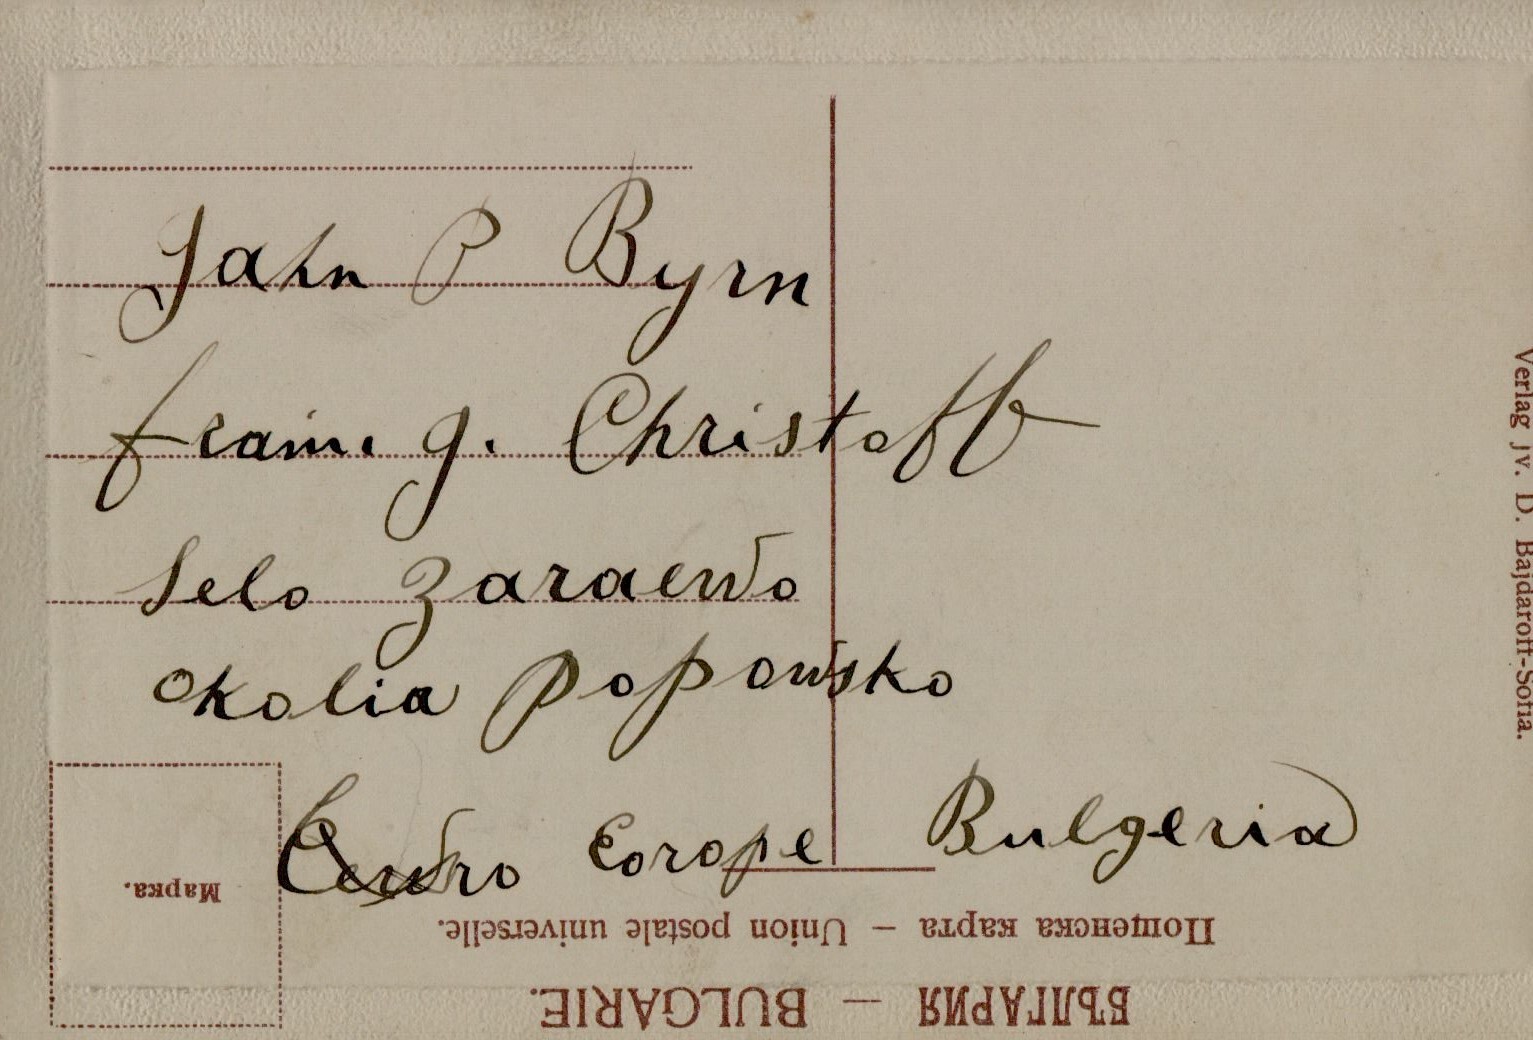 Jahn P Byrn
fraim. g. Christoff
Selo Zaraewo
okolia Popowsko
Eorope Bulgeria
Марка.
Пощенска карта — Union postale universelle.
БЪЛГАРИЯ — BULGARIE.
Verlag jv. D. Bajdaroff-Sofia.